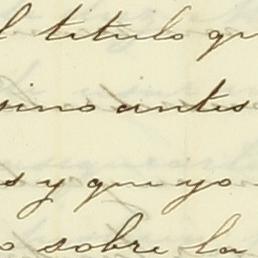 l titulo qu
sino antes
s y que yo
o sobre la